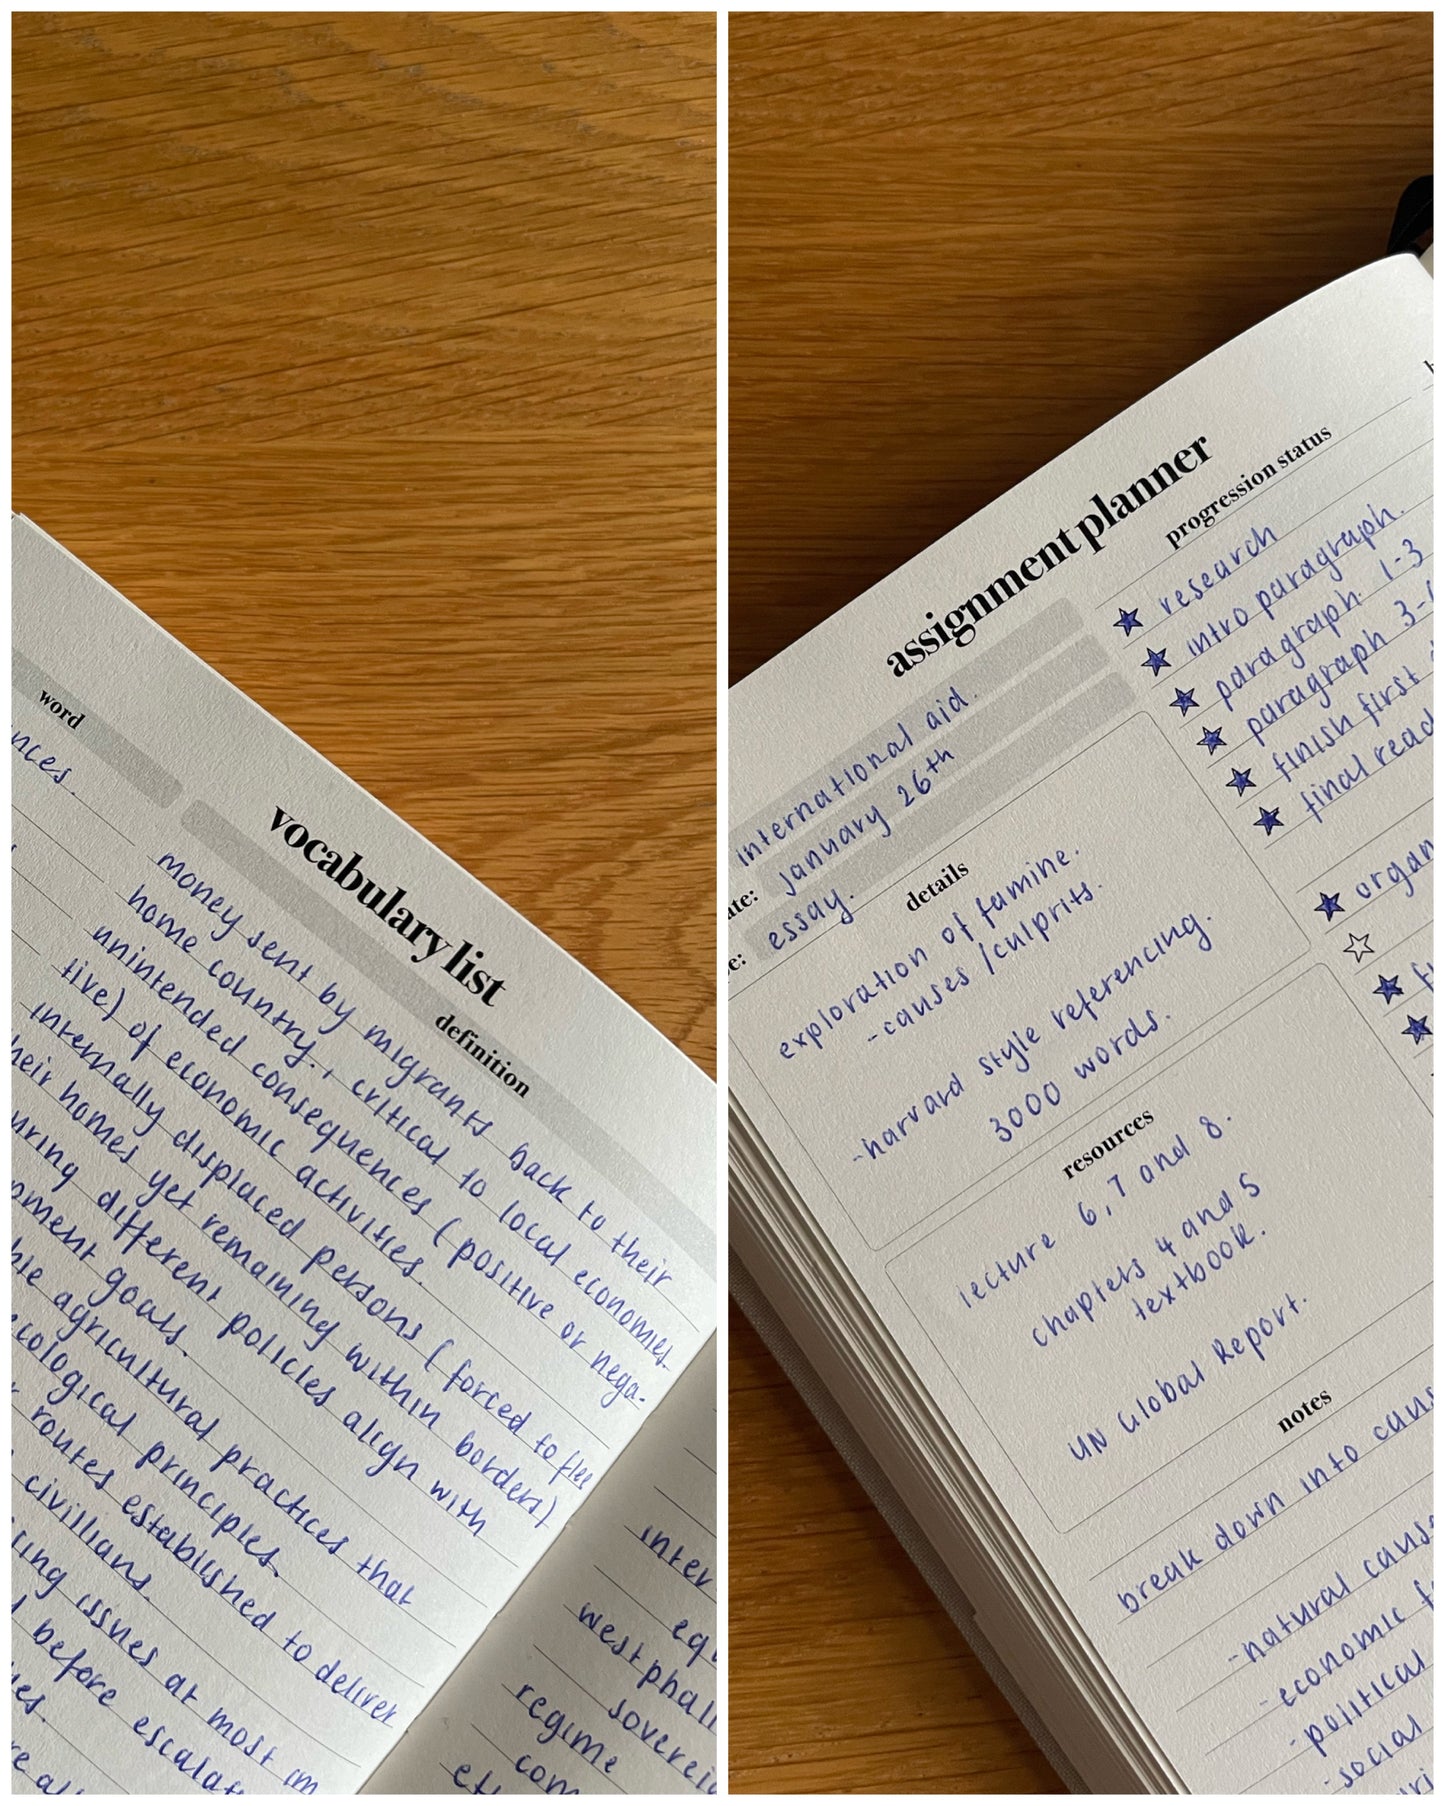 vocabulary list
word
definition
nces.
money sent by migrants back to their
home country., critical to local economies.
unintended consequences (positive or nega-
tive) of economic activities.
internally displaced persons (forced to flee
heir homes yet remaining within borders)
uring different policies align with
pment goals.
agricultural practices that
cological principles.
routes established to deliver
civillians.
ing issues at most im
before escalat
es.
re al
inter
eq
westphali
soverei
regime
com
assignment planner
international aid.
january 26th
essay.
details
exploration of famine.
-causes /culprits.
-harvard style referencing.
3000 words.
resources
lecture 6, 7 and 8.
chapters 4 and 5
textbook.
UN Global Report.
notes
break down into caus
-natural cause
-economic f
-political
-social
progression status
research
intro paragraph.
paragraph 1-3
paragraph 3-
finish first
final read
organ